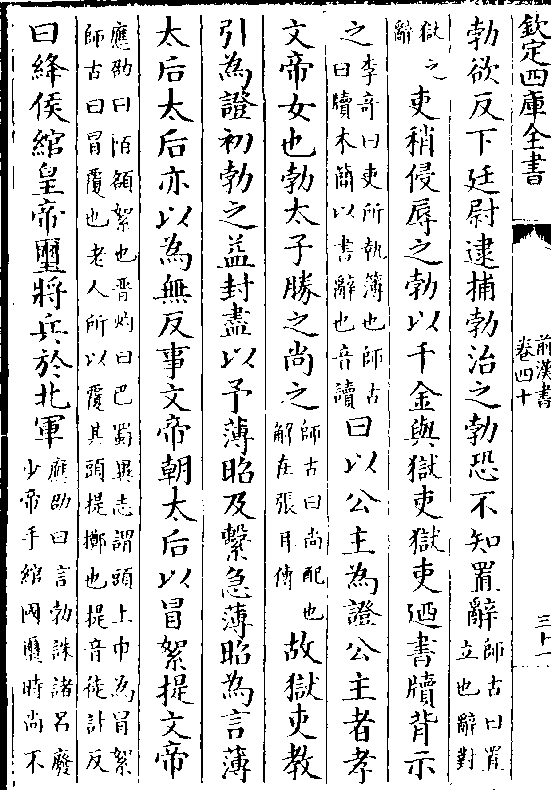 欽定四庫全書
前漢書
卷四十
三十一
勃欲反下廷尉逮捕勃治之勃恐不知置辭師古曰置立也辭對
獄之辭吏稍侵辱之勃以千金與獄吏獄吏廼書牘背示
之李奇曰吏所執簿也師古曰牘木簡以書辭也音讀曰以公主為證公主者孝
文帝女也勃太子勝之尚之師古曰尚配也解在張耳傳故獄吏教
引為證初勃之益封盡以予薄昭及繫急薄昭為言薄
太后太后亦以為無反事文帝朝太后以冒絮提文帝
應劭曰陌額絮也晉灼曰巴蜀異志謂頭上巾為冒絮師古曰冒覆也老人所以覆其頭提擲也提音徒計反
曰絳侯綰皇帝璽將兵於北軍應劭曰言勃誅諸呂廢少帝手綰國璽時尚不